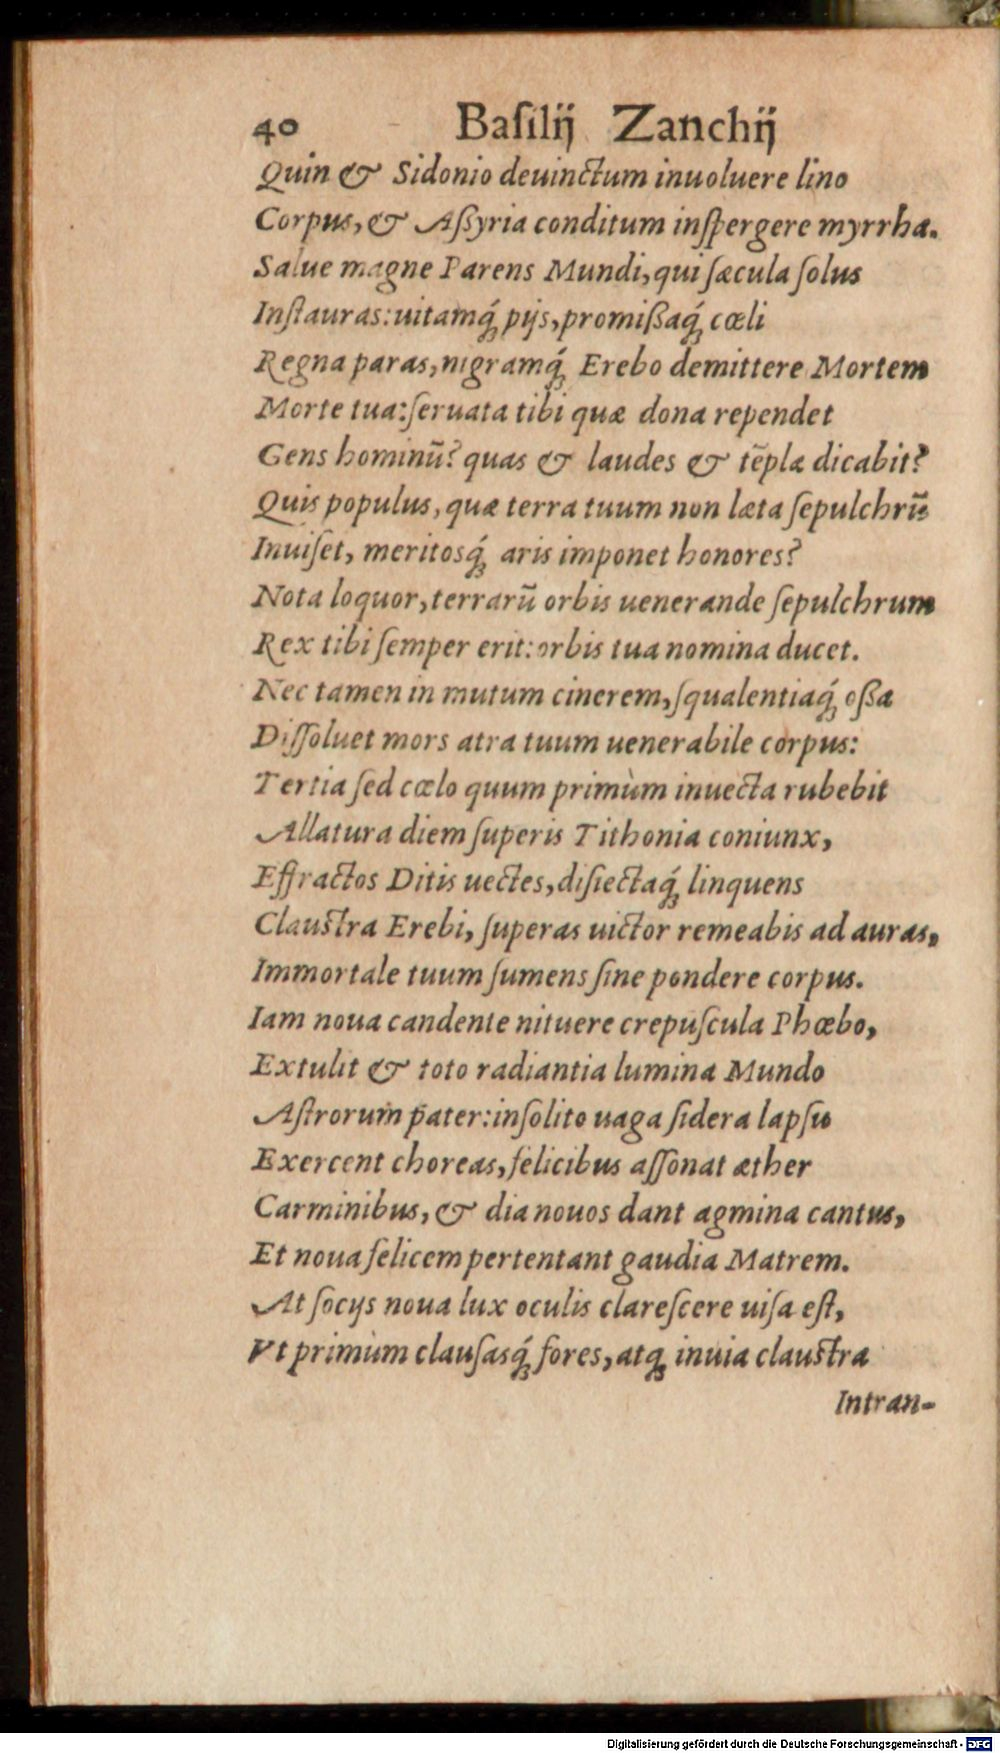 40 Baſilij Zanchij
Quin & Sidonio deuinctum inuoluere lino
Corpus, & Aßyria conditum inſpergere myrrha.
Salue magne Parens Mundi, qui ſæcula ſolus
Inſtauras: uitamq́; pijs, promißaq́; cœli
Regna paras, nigramq́; Erebo demittere Mortem
Morte tua: ſeruata tibi quæ dona rependet
Gens hominũ? quas & laudes & tẽpla dicabit?
Quis populus, quæ terra tuum non læta ſepulchrũ
Inuiſet, meritosq́; aris imponet honores?
Nota loquor, terrarũ orbis uenerande ſepulchrum
Rex tibi ſemper erit: orbis tua nomina ducet.
Nec tamen in mutum cinerem, ſqualentiaq́; oßa
Diſſoluet mors atra tuum uenerabile corpus:
Tertia ſed cœlo quum primùm inuecta rubebit
Allatura diem ſuperis Tithonia coniunx,
Effractos Ditis uectes, diſiectaq́; linquens
Clauſtra Erebi, ſuperas uictor remeabis ad auras,
Immortale tuum ſumens ſine pondere corpus.
Iam noua candente nituere crepuſcula Phœbo,
Extulit & toto radiantia lumina Mundo
Aſtrorum pater: inſolito uaga ſidera lapſu
Exercent choreas, felicibus aſſonat æther
Carminibus, & dia nouos dant agmina cantus,
Et noua felicem pertentant gaudia Matrem.
At ſocijs noua lux oculis clareſcere uiſa eſt,
Vt primùm clauſasq́; fores, atq; inuia clauſtra
Intran-
Digitalisierung gefördert durch die Deutsche Forschungsgemeinschaft - DFG